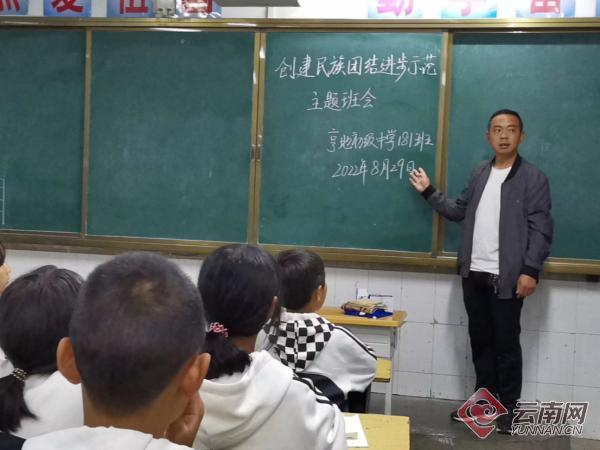 创建民族团结进步示范
主题班会
亨地初级中学181班
2022年8月29日
云南网
YUNNAN.CN